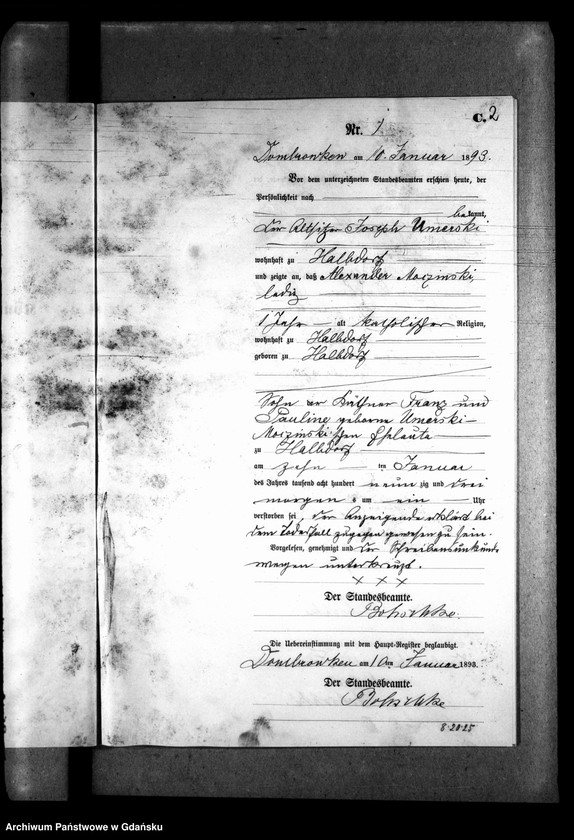 C. 2
Nr. 1.
Dombrowken am 10. Januar 1893.
Vor dem unterzeichneten Standesbeamten erschien heute, der
Persönlichkeit nach
bekannt,
der Altsitzer Joseph Umerski
wohnhaft zu Halbdorf
und zeigte an, daß Alexander Moczinski,
ledig
1 Jahr alt katholischer Religion,
wohnhaft zu Halbdorf
geboren zu Halbdorf
Sohn der Käthner Franz und
Pauline geborne Umerski
Moczinski'schen Eheleute
zu Halbdorf
am zehn ten Januar
des Jahres tausend acht hundert neun zig und drei
morgens um ein Uhr
verstorben sei, der Anzeigende erklärt bei
dem Todesfall zugegen gewesen zu sein.
Vorgelesen, genehmigt und der Schreibensunkunde
wegen unterkreuzt.
× × ×
Der Standesbeamte.
Die Uebereinstimmung mit dem Haupt-Register beglaubigt.
Dombrowken am 10ten Januar 1893.
Der Standesbeamte.
8·2025
Archiwum Państwowe w Gdańsku